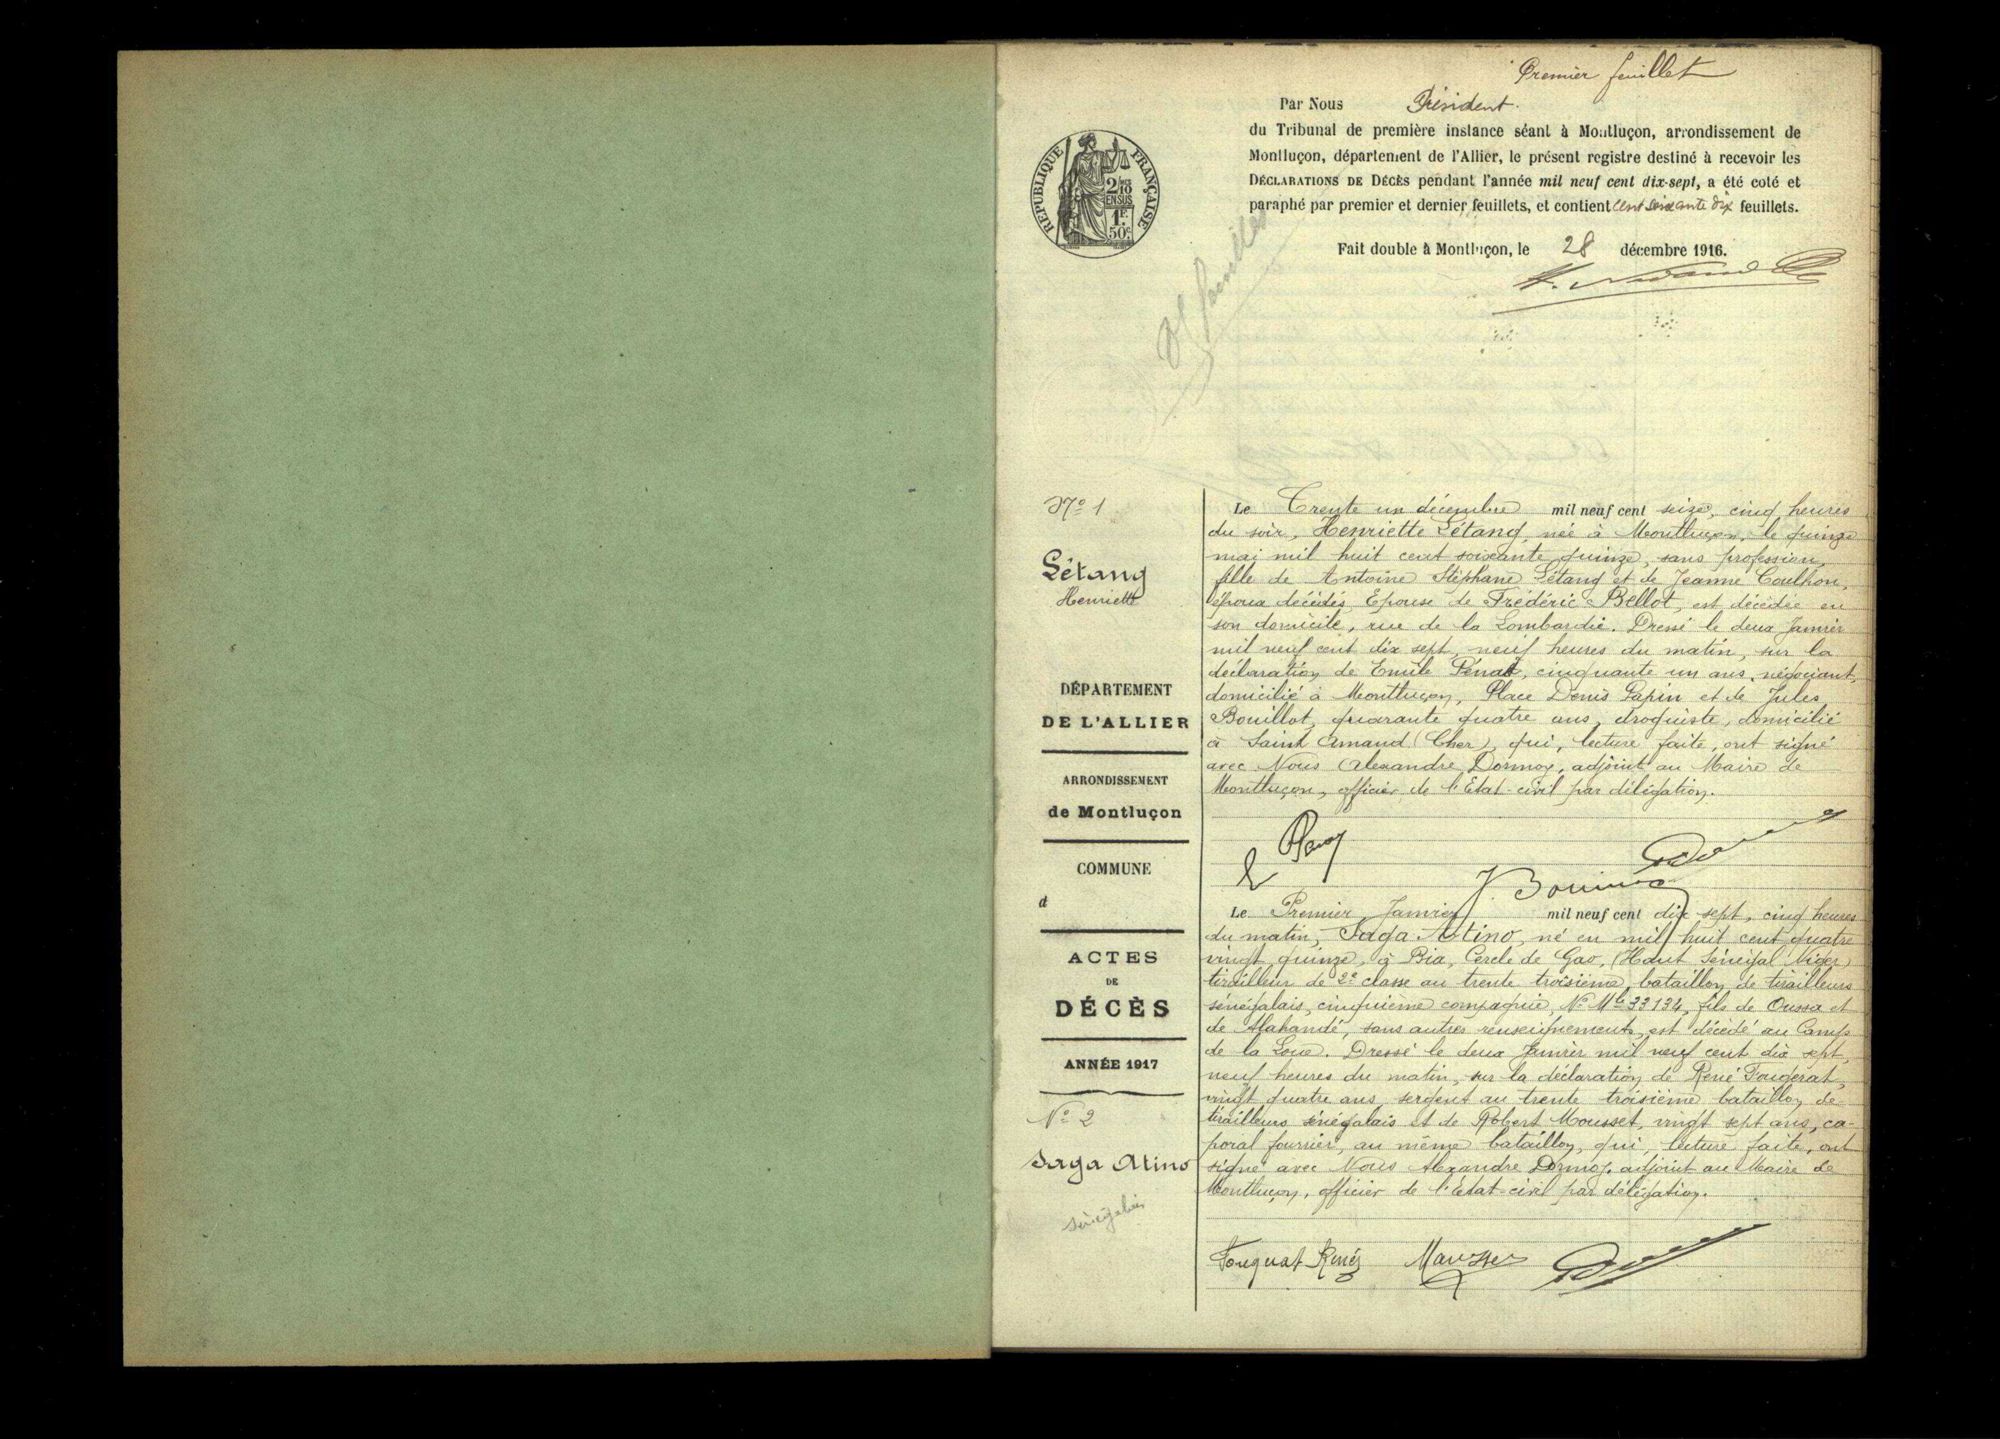 Premier feuillet
Par Nous Président.
du Tribunal de première instance séant à Montluçon, arrondissement de
Montluçon, département de l'Allier, le présent registre destiné à recevoir les
DÉCLARATIONS DE DÉCÈS pendant l'année mil neuf cent dix-sept, a été coté et
paraphé par premier et dernier feuillets, et contient cent soixante dix feuillets.
Fait double à Montluçon, le 28 décembre 1916.
RÉPUBLIQUE FRANÇAISE
2/10
EN SUS
1F.
50c
No 1
Létang
Henriette
DÉPARTEMENT
DE L'ALLIER
ARRONDISSEMENT
de Montluçon
COMMUNE
d
ACTES
DE
DÉCÈS
ANNÉE 1917
No 2
Saga Atino
sénégalais
Le Trente un décembre mil neuf cent seize, cinq heures
du soir, Henriette Létang, née à Montluçon, le quinze
mai mil huit cent soixante quinze, sans profession,
fille de Antoine Stéphane Létang et de Jeanne Coulhon,
époux décédés, Epouse de Frédéric Bellot, est décédée en
son domicile, rue de la Lombardie. Dressé le deux Janvier
mil neuf cent dix sept, neuf heures du matin, sur la
déclaration de Emile Pénat, cinquante un ans, négociant,
domicilié à Montluçon, Place Denis Papin et de Jules
Bouillot, quarante quatre ans, droguiste, domicilié
à Saint Amand (Cher), qui, lecture faite, ont signé
avec Nous Alexandre Dormoy, adjoint au Maire de
Montluçon, officier de l'Etat-civil par délégation.
Le Premier Janvier mil neuf cent dix sept, cinq heures
du matin, Saga Atino, né en mil huit cent quatre
vingt quinze, à Bia, Cercle de Gao, (Haut Sénégal Niger)
tirailleur de 2e classe au trente troisième bataillon de tirailleurs
sénégalais, cinquième compagnie, No Mle 33134, fils de Oussa et
de Alahandé, sans autres renseignements, est décédé au Camp
de la Loue. Dressé le deux Janvier mil neuf cent dix sept,
neuf heures du matin, sur la déclaration de René Fougerat,
vingt quatre ans, sergent au trente troisième bataillon de
tirailleurs sénégalais et de Robert Mousset, vingt sept ans, ca-
poral fourrier, au même bataillon, qui, lecture faite, ont
signé avec Nous Alexandre Dormoy, adjoint au Maire de
Montluçon, officier de l'Etat-civil par délégation.